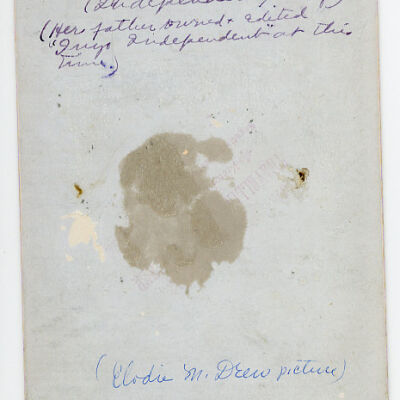 (Independence,
(Her father owned & edited
"Inyo Independent" at this
time.)
(Elodie M. Drew picture)